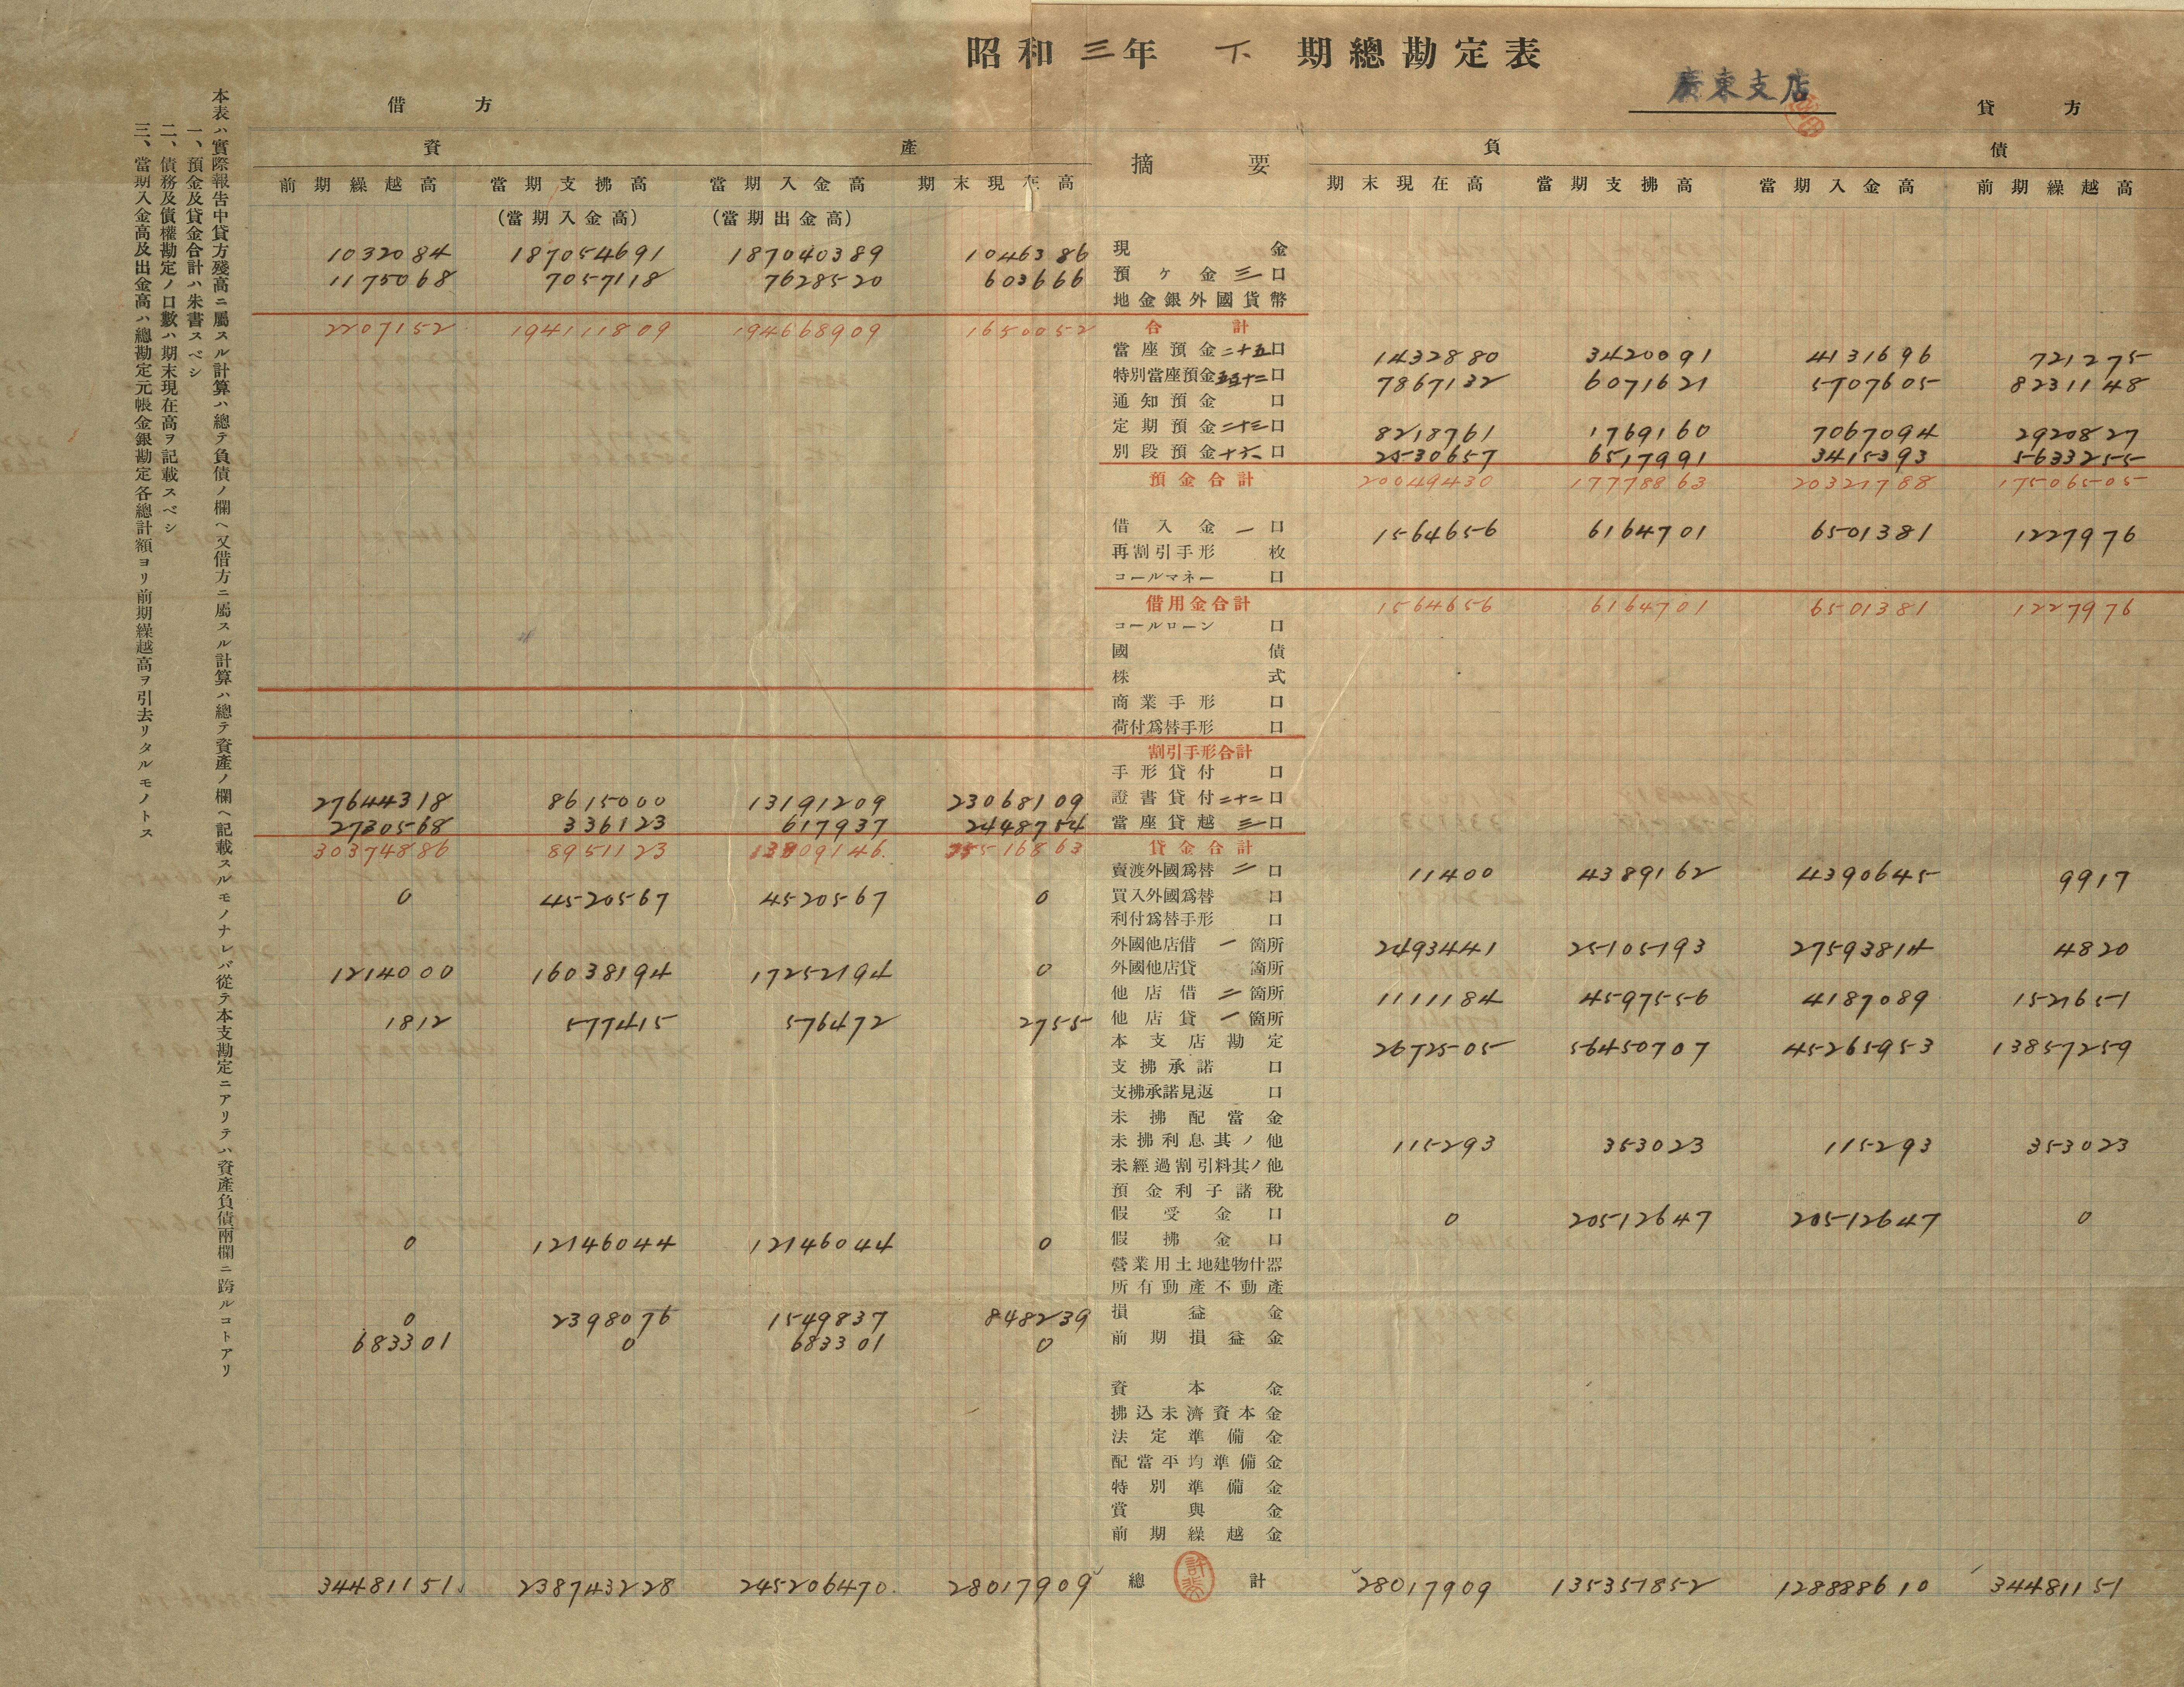 昭和三年 下 期總勘定表
廣東支店
借方 貸方
資產 摘要 負債
前期繰越高 當期支拂高 當期入金高 期末現在高 期末現在高 當期支拂高 當期入金高 前期繰越高
(當期入金高) (當期出金高)
1032084 187054691 187040389 1046386 現金
1175068 7057118 7628520 603666 預ヶ金三口
地金銀外國貨幣
2207152 194111809 194668909 1650052 合計
當座預金二十五口 1432880 3420091 4131696 721275
特別當座預金五百十二口 7867132 6071621 5707605 8231148
通知預金 口
定期預金二十三口 8218761 1769160 7067094 2920827
別段預金十六口 2530657 6517991 3415393 5633255
預金合計 20049430 17778863 20321788 17506505
借入金一口 1564656 6164701 6501381 1227976
再割引手形 枚
コールマネー 口
借用金合計 1564656 6164701 6501381 1227976
コールローン 口
國債
株式
商業手形 口
荷付爲替手形 口
割引手形合計
手形貸付 口
27644318 8615000 13191209 23068109 證書貸付二十二口
2730568 336123 617937 2448754 當座貸越三口
30374886 8951123 13809146 25516863 貸金合計
賣渡外國爲替二口 11400 4389162 4390645 9917
0 4520567 4520567 0 買入外國爲替 口
利付爲替手形 口
外國他店借一箇所 2493441 25105193 27593814 4820
1214000 16038194 17252194 0 外國他店貸 箇所
他店借二箇所 1111184 4597556 4187089 1521651
1812 577415 576472 2755 他店貸一箇所
本支店勘定 2672505 56450707 45265953 13857259
支拂承諾 口
支拂承諾見返 口
未拂配當金
未拂利息其ノ他 115293 353023 115293 353023
未經過割引料其ノ他
預金利子諸稅
假受金 口 0 20512647 20512647 0
0 12146044 12146044 0 假拂金 口
營業用土地建物什器
所有動產不動產
0 2398076 1549837 848239 損益金
683301 0 683301 0 前期損益金
資本金
拂込未濟資本金
法定準備金
配當平均準備金
特別準備金
賞與金
前期繰越金
34481151 238743228 245206470 28017909 總計 28017909 135357852 128888610 34481151
本表ハ實際報告中貸方殘高ニ屬スル計算ハ總テ負債ノ欄ヘ又借方ニ屬スル計算ハ總テ資產ノ欄ヘ記載スルモノナレバ從テ本支勘定ニアリテハ資產負債兩欄ニ跨ルコトアリ
一、預金及貸金合計ハ朱書スベシ
二、債務及債權勘定ノ口數ハ期末現在高ヲ記載スベシ
三、當期入金高及出金高ハ總勘定元帳金銀勘定各總計額ヨリ前期繰越高ヲ引去リタルモノトス